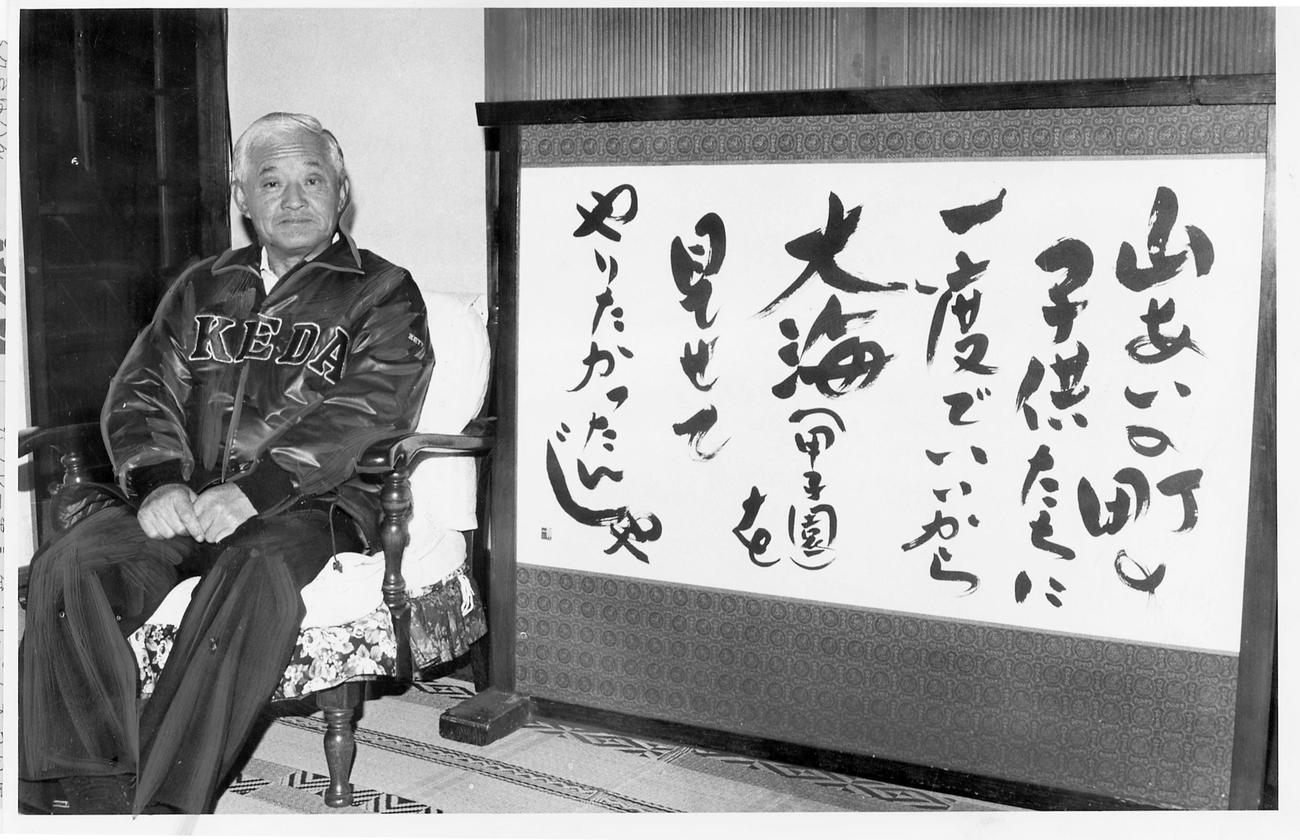 KEDA
山あいの町の
子供たちに
一度でいいから
大海（甲子園）を
見せて
やりたかったんじゃ